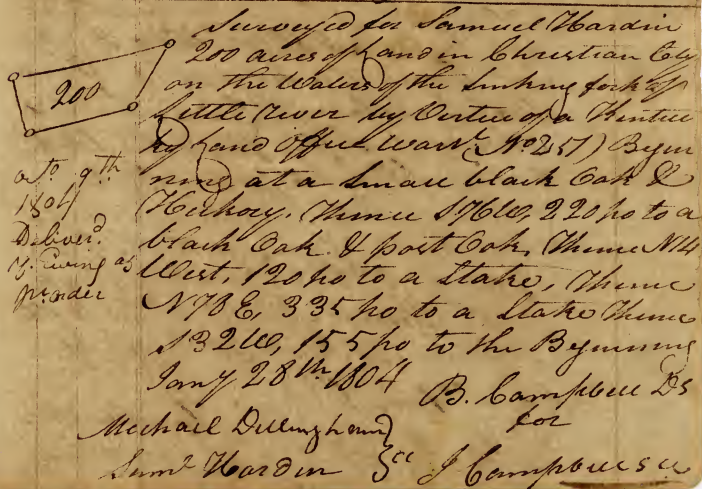 Surveyed for Samuel Hardin
200 acres of Land in Christian Cty
on the Waters of the Sinking fork of
Little river by Vertue of a Kentuc
ky Land Office Warrt. (No 257) Begin
ning at a Small black Oak &
Hickory. Thence S76W, 220 po to a
black Oak & post Oak, Thence N14
West, 120 po to a Stake, Thence
N78E, 335 po to a Stake Thence
S32W, 155 po to the Beginning
Jany 28th 1804
B. Campbell DS
for
J Campbell S
Michael Dillingham
Saml Hardin CC
200
9th
1804
Deliverd.
Ewing as
pr order